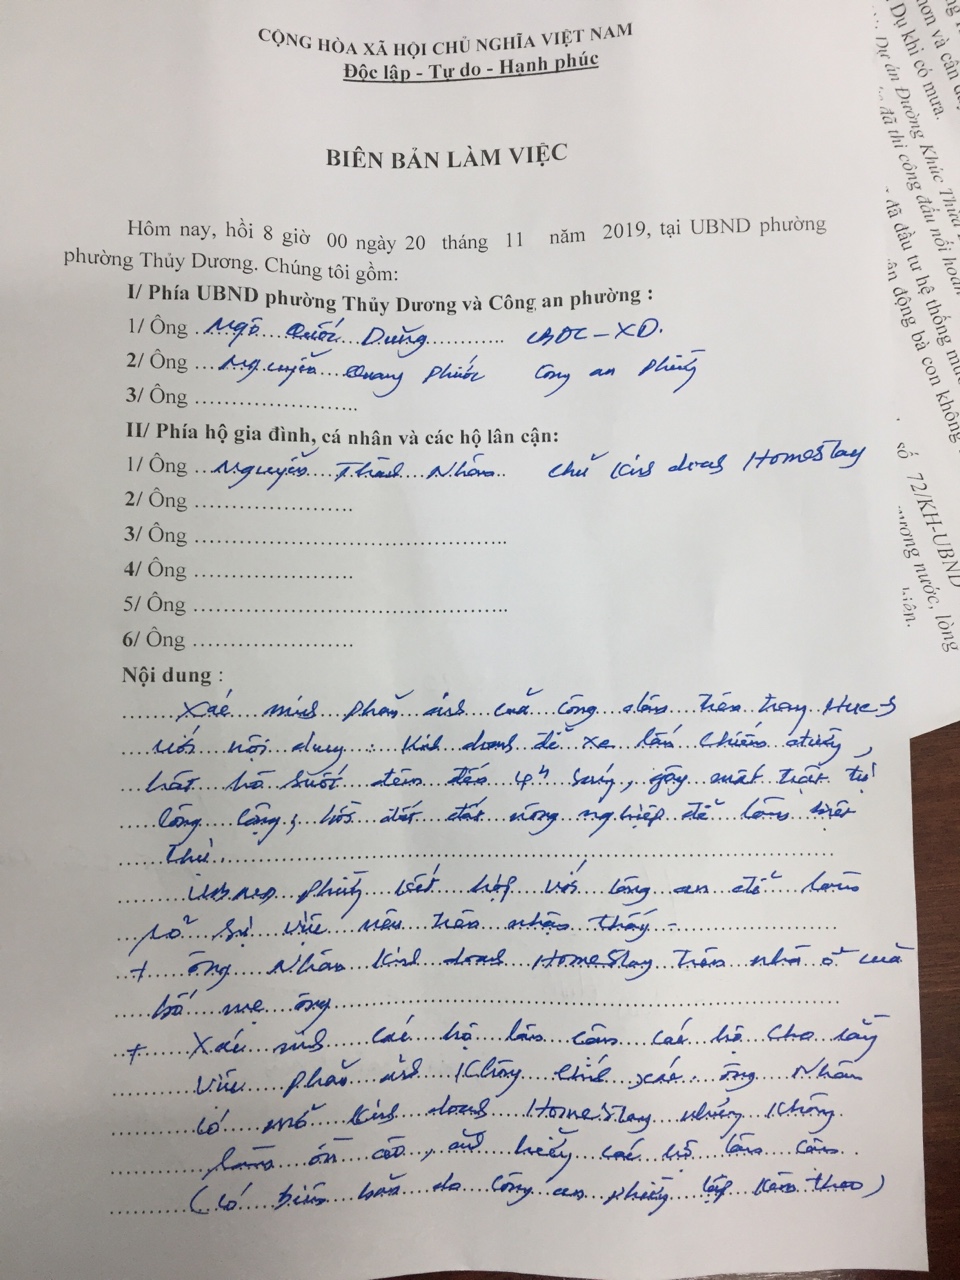 CỘNG HÒA XÃ HỘI CHỦ NGHĨA VIỆT NAM
Độc lập - Tự do - Hạnh phúc
BIÊN BẢN LÀM VIỆC
Hôm nay, hồi 8 giờ 00 ngày 20 tháng 11 năm 2019, tại UBND phường
phường Thủy Dương. Chúng tôi gồm:
I/ Phía UBND phường Thủy Dương và Công an phường :
1/ Ông Ngô Quốc Dũng ĐC-XD.
2/ Ông Nguyễn Quang Phước Công an phường
3/ Ông ....................
II/ Phía hộ gia đình, cá nhân và các hộ lân cận:
1/ Ông Nguyễn Thành Nhân chủ kinh doanh HomeStay
2/ Ông ....................
3/ Ông ....................
4/ Ông ....................
5/ Ông ....................
6/ Ông ....................
Nội dung :
Xác minh phản ánh của công dân trên trang HueS
với nội dung : Kinh doanh để xe lấn chiếm đường,
hát hò suốt đêm đến 4h sáng, gây mất trật tự
công cộng, đất nông nghiệp để làm biệt
thự.
UBND phường kết hợp với công an để làm
rõ sự việc nêu trên nhận thấy -
+ ông Nhân kinh doanh HomeStay trên nhà ở của
bố mẹ ông
+ Xác minh các hộ lân cận các hộ cho rằng
việc phản ánh không chính xác ông Nhân
có mở kinh doanh HomeStay nhưng không
làm ồn ào, ảnh hưởng các hộ lân cận.
(có biên bản do công an phường lập kèm theo)
Dụ khi có mưa.
Dự án Đường Khúc Thừa
đã thi công đấu nối hoàn
đã đầu tư hệ thống mươ
động bà con không
số 72/KH-UBND
mương nước, lòng